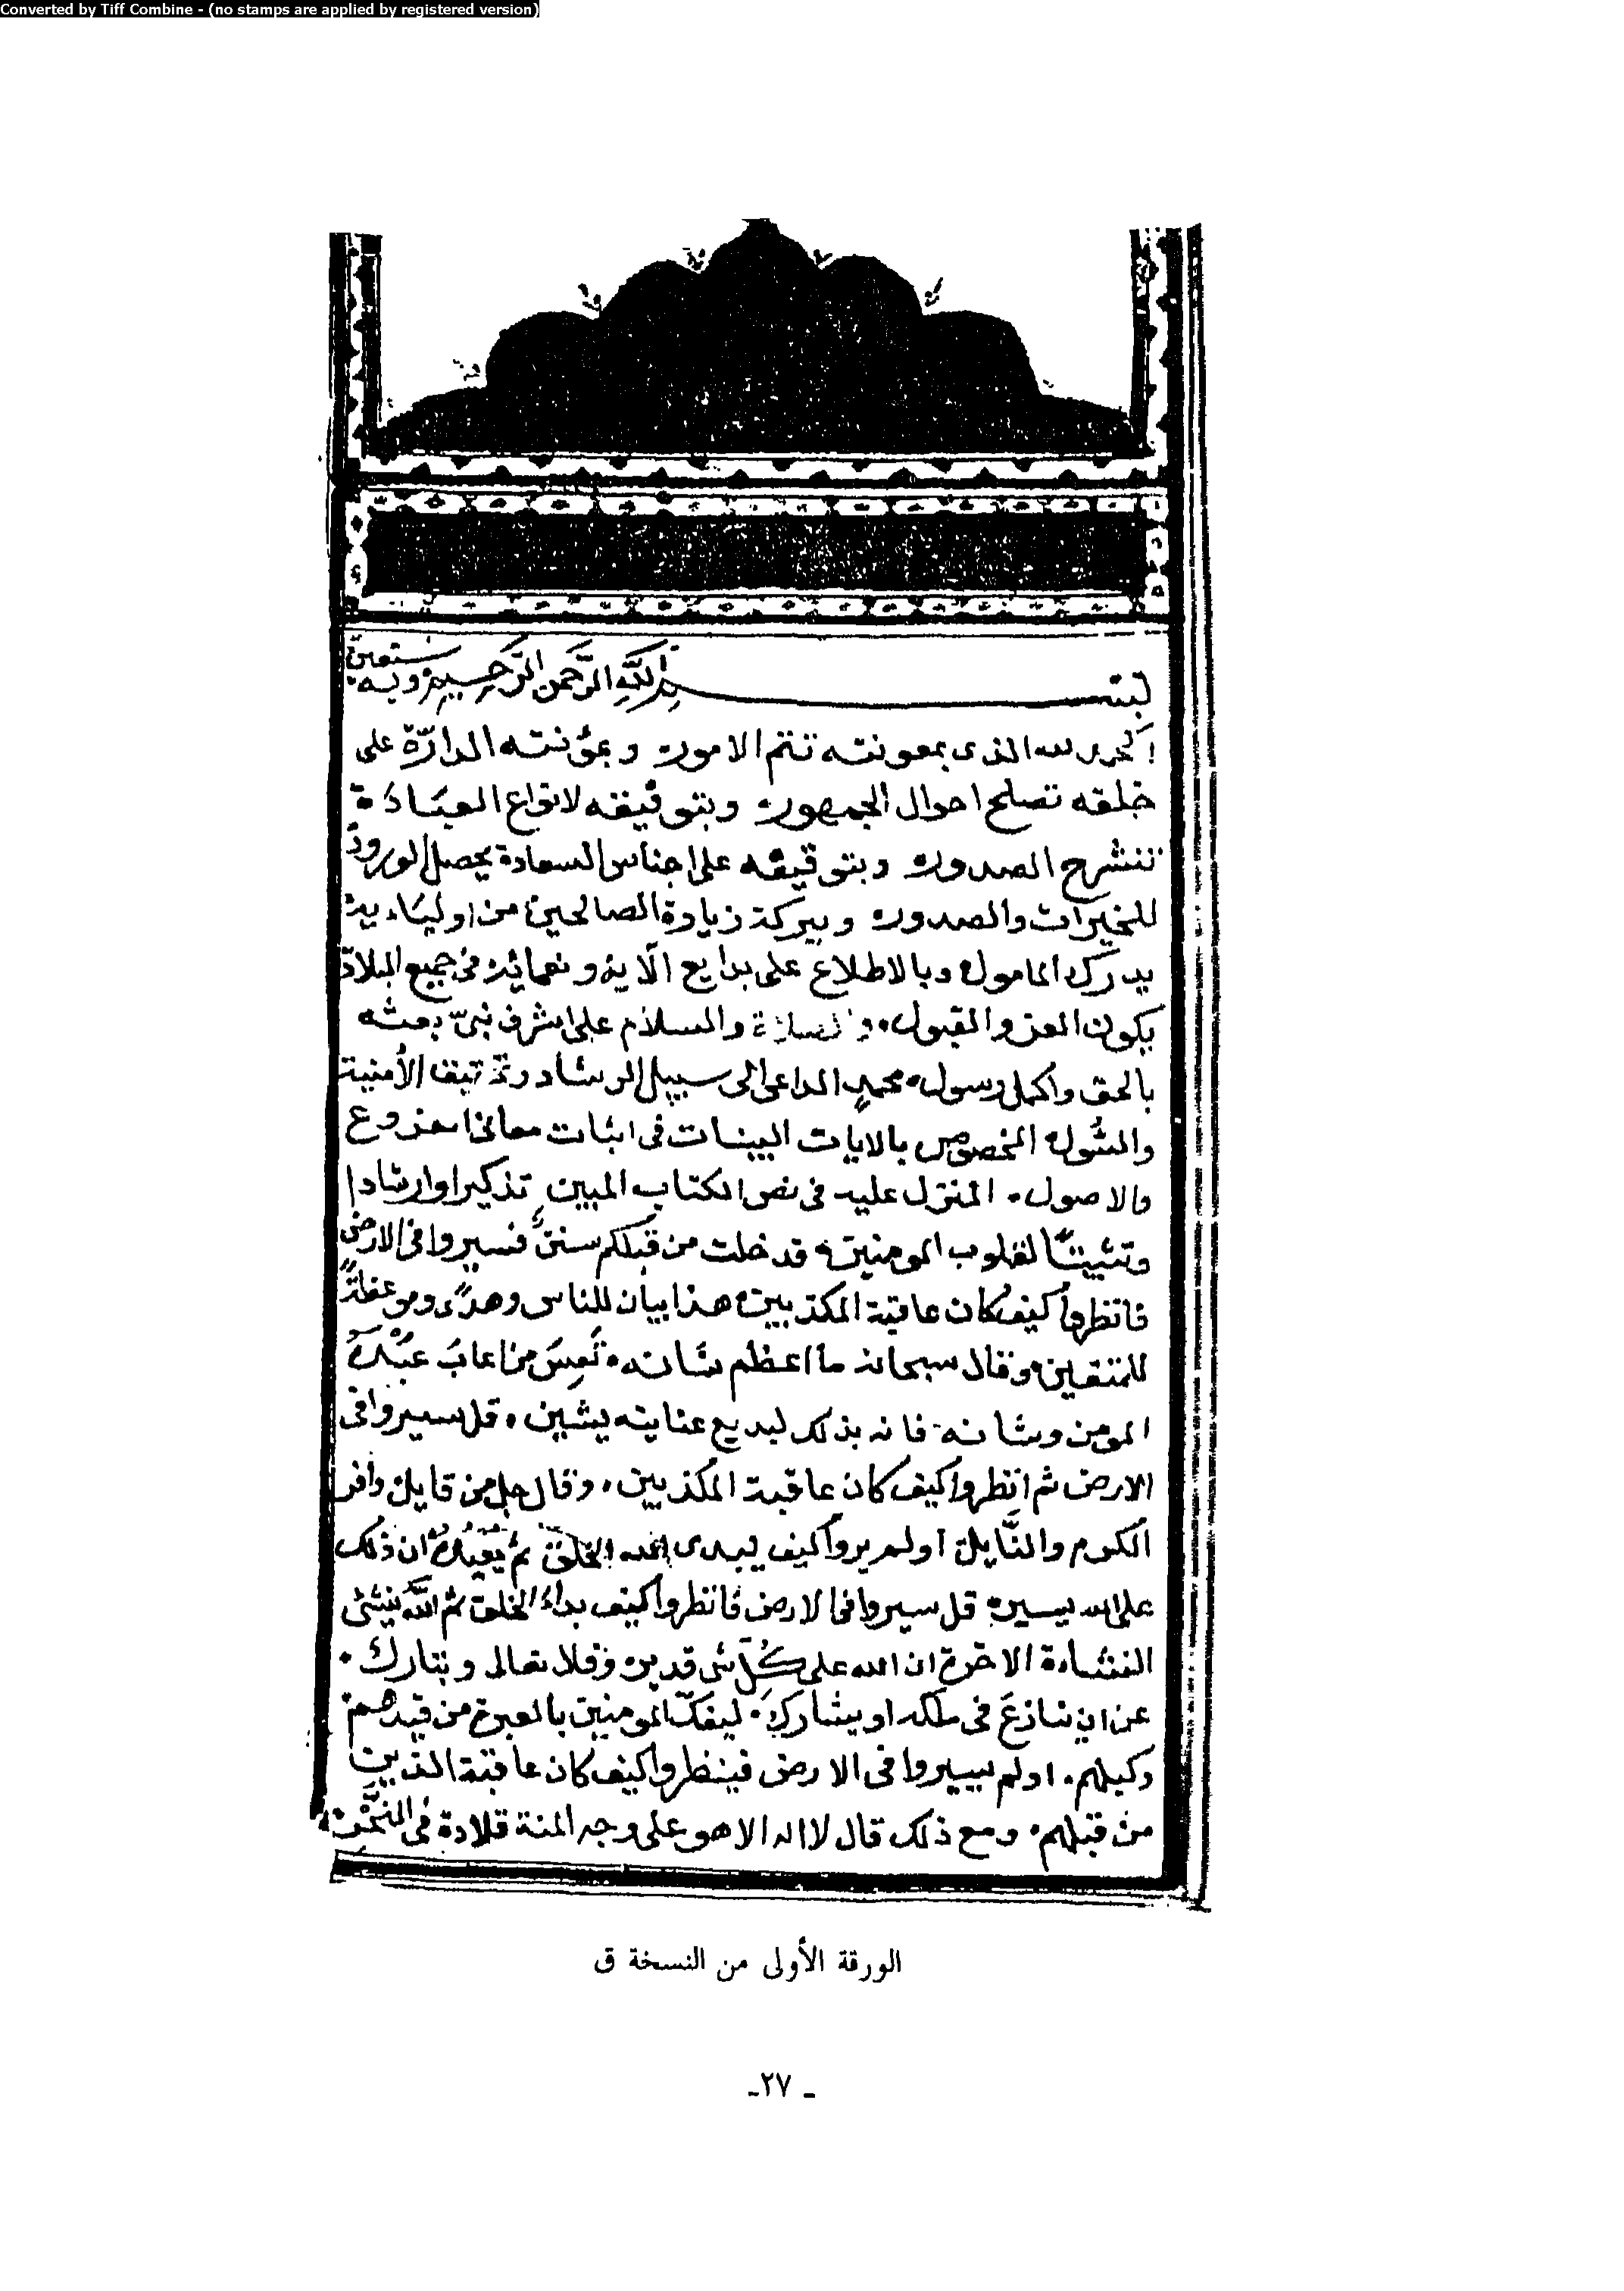 Converted by Tiff Combine - (no stamps are applied by registered version)
بسم الله الرحمن الرحيم وبه نستعين
الحمد لله الذى بمعونته تتم الامور وبمؤنته الدارّة على
خلقه تصلح احوال الجمهور وبتوفيقه لانواع العبادة
تنشرح الصدور وبتوقيفه على اجناس السعادة يحصل الورود
للخيرات والصدور وببركة زيارة الصالحين من اولياء يه
يدرك المامول وبالاطلاع على بدايع الآيه ونعمائه فى جميع البلاد
يكون العز والقبول والصلاة والسلام على اشرف نبىّ بعثه
بالحق واكمل رسول محمدٍ الداعى الى سبيل الرشاد الأمنية
والسُّول المخصوص بالايات البينات فى اثبات معانى
والاصول. المنزل عليه فى نص الكتاب المبين تذكيرا وارشادا
وتثبيتًا لقلوب المومنين قد خلت من قبلكم سننٌ فسيروا فى الارض
فانظروا كيف كان عاقبة المكذبين هذا بيان للناس وهدًى وموعظةٌ
للمتقين وقال سبحانه ما اعظم شانه تَعِسَ من عابَ عبْدَهُ
المومن وشانه فانه بذلك لبديع عنايته يشين قل سيروا فى
الارض ثم انظروا كيف كان عاقبة المكذبين وقال جل من قايل وافر
الكرم والنَّايل اولم يروا كيف يبدى الله الخلق ثم يُعِيدُهُ ان ذلك
على الله يسير قل سيروا فى الارض فانظروا كيف بداءَ الخلق ثم اللَّه ينشئ
النشاءة الاخرة ان الله على كُلِّ شى قدير وقال تعالى وتبارك.
عن ان ينازعَ فى ملكه او يشارك. ليفكّ المومنين بالعبرة من قيدهم
وكبلهم. اولم يسيروا فى الارض فينظروا كيف كان عاقبة الذين
من قبلهم. ومع ذلك قال لا اله الا هو على وجه المنة قلادة فى
الورقة الأولى من النسخة ق
ـ ٢٧ـ